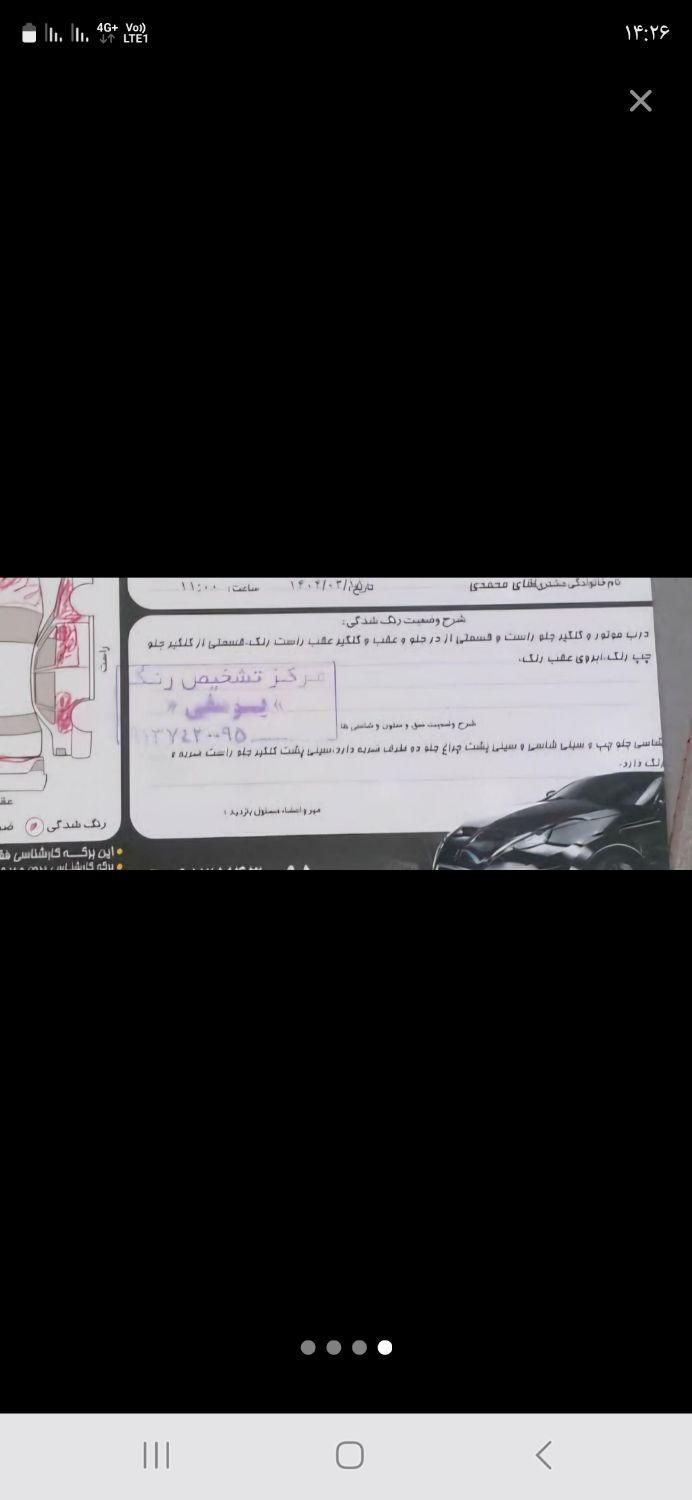 4G+ Vo) LTE1
۱۴:۲۶
نام خانوادگی مشتری: آقای محمدی
ساعت: ۱۱:۰۰
شرح وضعیت رنگ شدگی:
درب موتور و گلگیر جلو راست و قسمتی از در جلو و عقب و گلگیر عقب راست رنگ.قسمتی از گلگیر جلو
چپ رنگ.ابروی عقب رنگ.
مرکز تشخیص رنگ
» یوسفی «
شرح وضعیت سقف و ستون و شاسی ها
شاسی جلو چپ و سینی شاسی و سینی پشت چراغ جلو دو طرف ضربه دارد.سینی پشت گلگیر جلو راست ضربه و
رنگ دارد.
مهر و امضاء مسئول بازدید:
راست
رنگ شدگی
این برگه کارشناسی